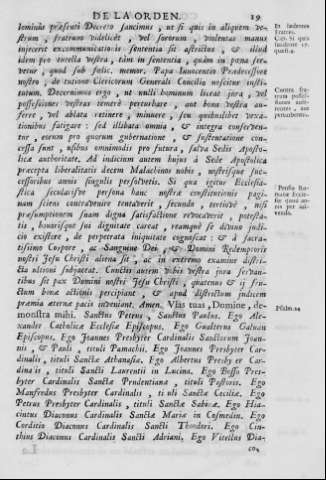 DE LA ORDEN. 19
lemnius præsenti Decreto sancimus, ut si quis in aliquem ve-
strum, fratrum videlicet, vel sororum, violentas manus
injecerit excommunicationis sententia sit astrictus, & illud
idem pro tutella vestra, tàm in sententia, quàm in pœna ser-
vetur, quod sub felic. memor. Papa Innocentio Prædecessore
nostro, de tutatione Clericorum Generali Concilio noscitur institu-
tum. Decernimus ergo, ut nulli hominum liceat jura, vel
possessiones vestras temerè perturbare, aut bona vestra au-
ferre, vel ablata retinere, minuere, seu quibuslibet vexa-
tionibus fatigare: sed illibata omnia, & integra conserven-
tur, eorum pro quorum gubernatione, & sustentatione con-
cessa sunt, usibus omnimodis pro futura, salva Sedis Aposto-
lica authoritate. Ad indicium autem hujus à Sede Apostolica
præcepta liberalitatis decem Malachinos nobis, nostrisque suc-
cessoribus annis singulis persolvetis. Si qua igitur Ecclesia-
stica sæcularisve persona hanc nostra constitutionis pagi-
nam sciens contravenire tentaverit, secundo, tertiove, nisi
præsumptionem suam digna satisfactione revocaverit, potesta-
tis, honorisque sui dignitate careat, reamque se divino judi-
cio existere, de perpetrata iniquitate cognoscat: & à sacra-
tissimo Corpore, ac Sanguine Dei, & Domini Redemptoris
nostri Jesu Christi aliena sit, ac in extremo examine distri-
cta ultioni subjaceat. Cunctis autem vobis vestra jura servan-
tibus sit pax Domini nostri Jesu Christi, quatenus & ij fru-
ctum bonæ actionis percipiant, & apud districtum judicem
præmia æternæ pacis inveniant. Amen. Vias tuas, Domine, de-
monstra mihi. Sanctus Petrus, Sanctus Paulus. Ego Ale-
xander Catholicæ Ecclesiæ Episcopus. Ego Gualterus Galvan
Episcopus. Ego Joannes Presbyter Cardinalis Sanctorum Joan-
nis, & Pauli, tituli Pamachij. Ego Joannes Presbyter Car-
dinalis, tituli Sanctæ Athanasiæ. Ego Albertus Presbyter Car-
dinalis, tituli Sancti Laurentij in Lucina. Ego Bosso Pres-
byter Cardinalis Sanctæ Prudentiana, tituli Pastoris. Ego
Manfredus Presbyter Cardinalis, tituli Sanctæ Ceciliæ. Ego
Petrus Presbyter Cardinalis, tituli Sanctæ Sabinæ. Ego Hia-
cintus Diaconus Cardinalis Sanctæ Mariæ in Cosmedin. Ego
Corditio Diaconus Cardinalis Sancti Theodori. Ego Cin-
thius Diaconus Cardinalis Sancti Adriani. Ego Vitellus Dia-
Psalm. 24